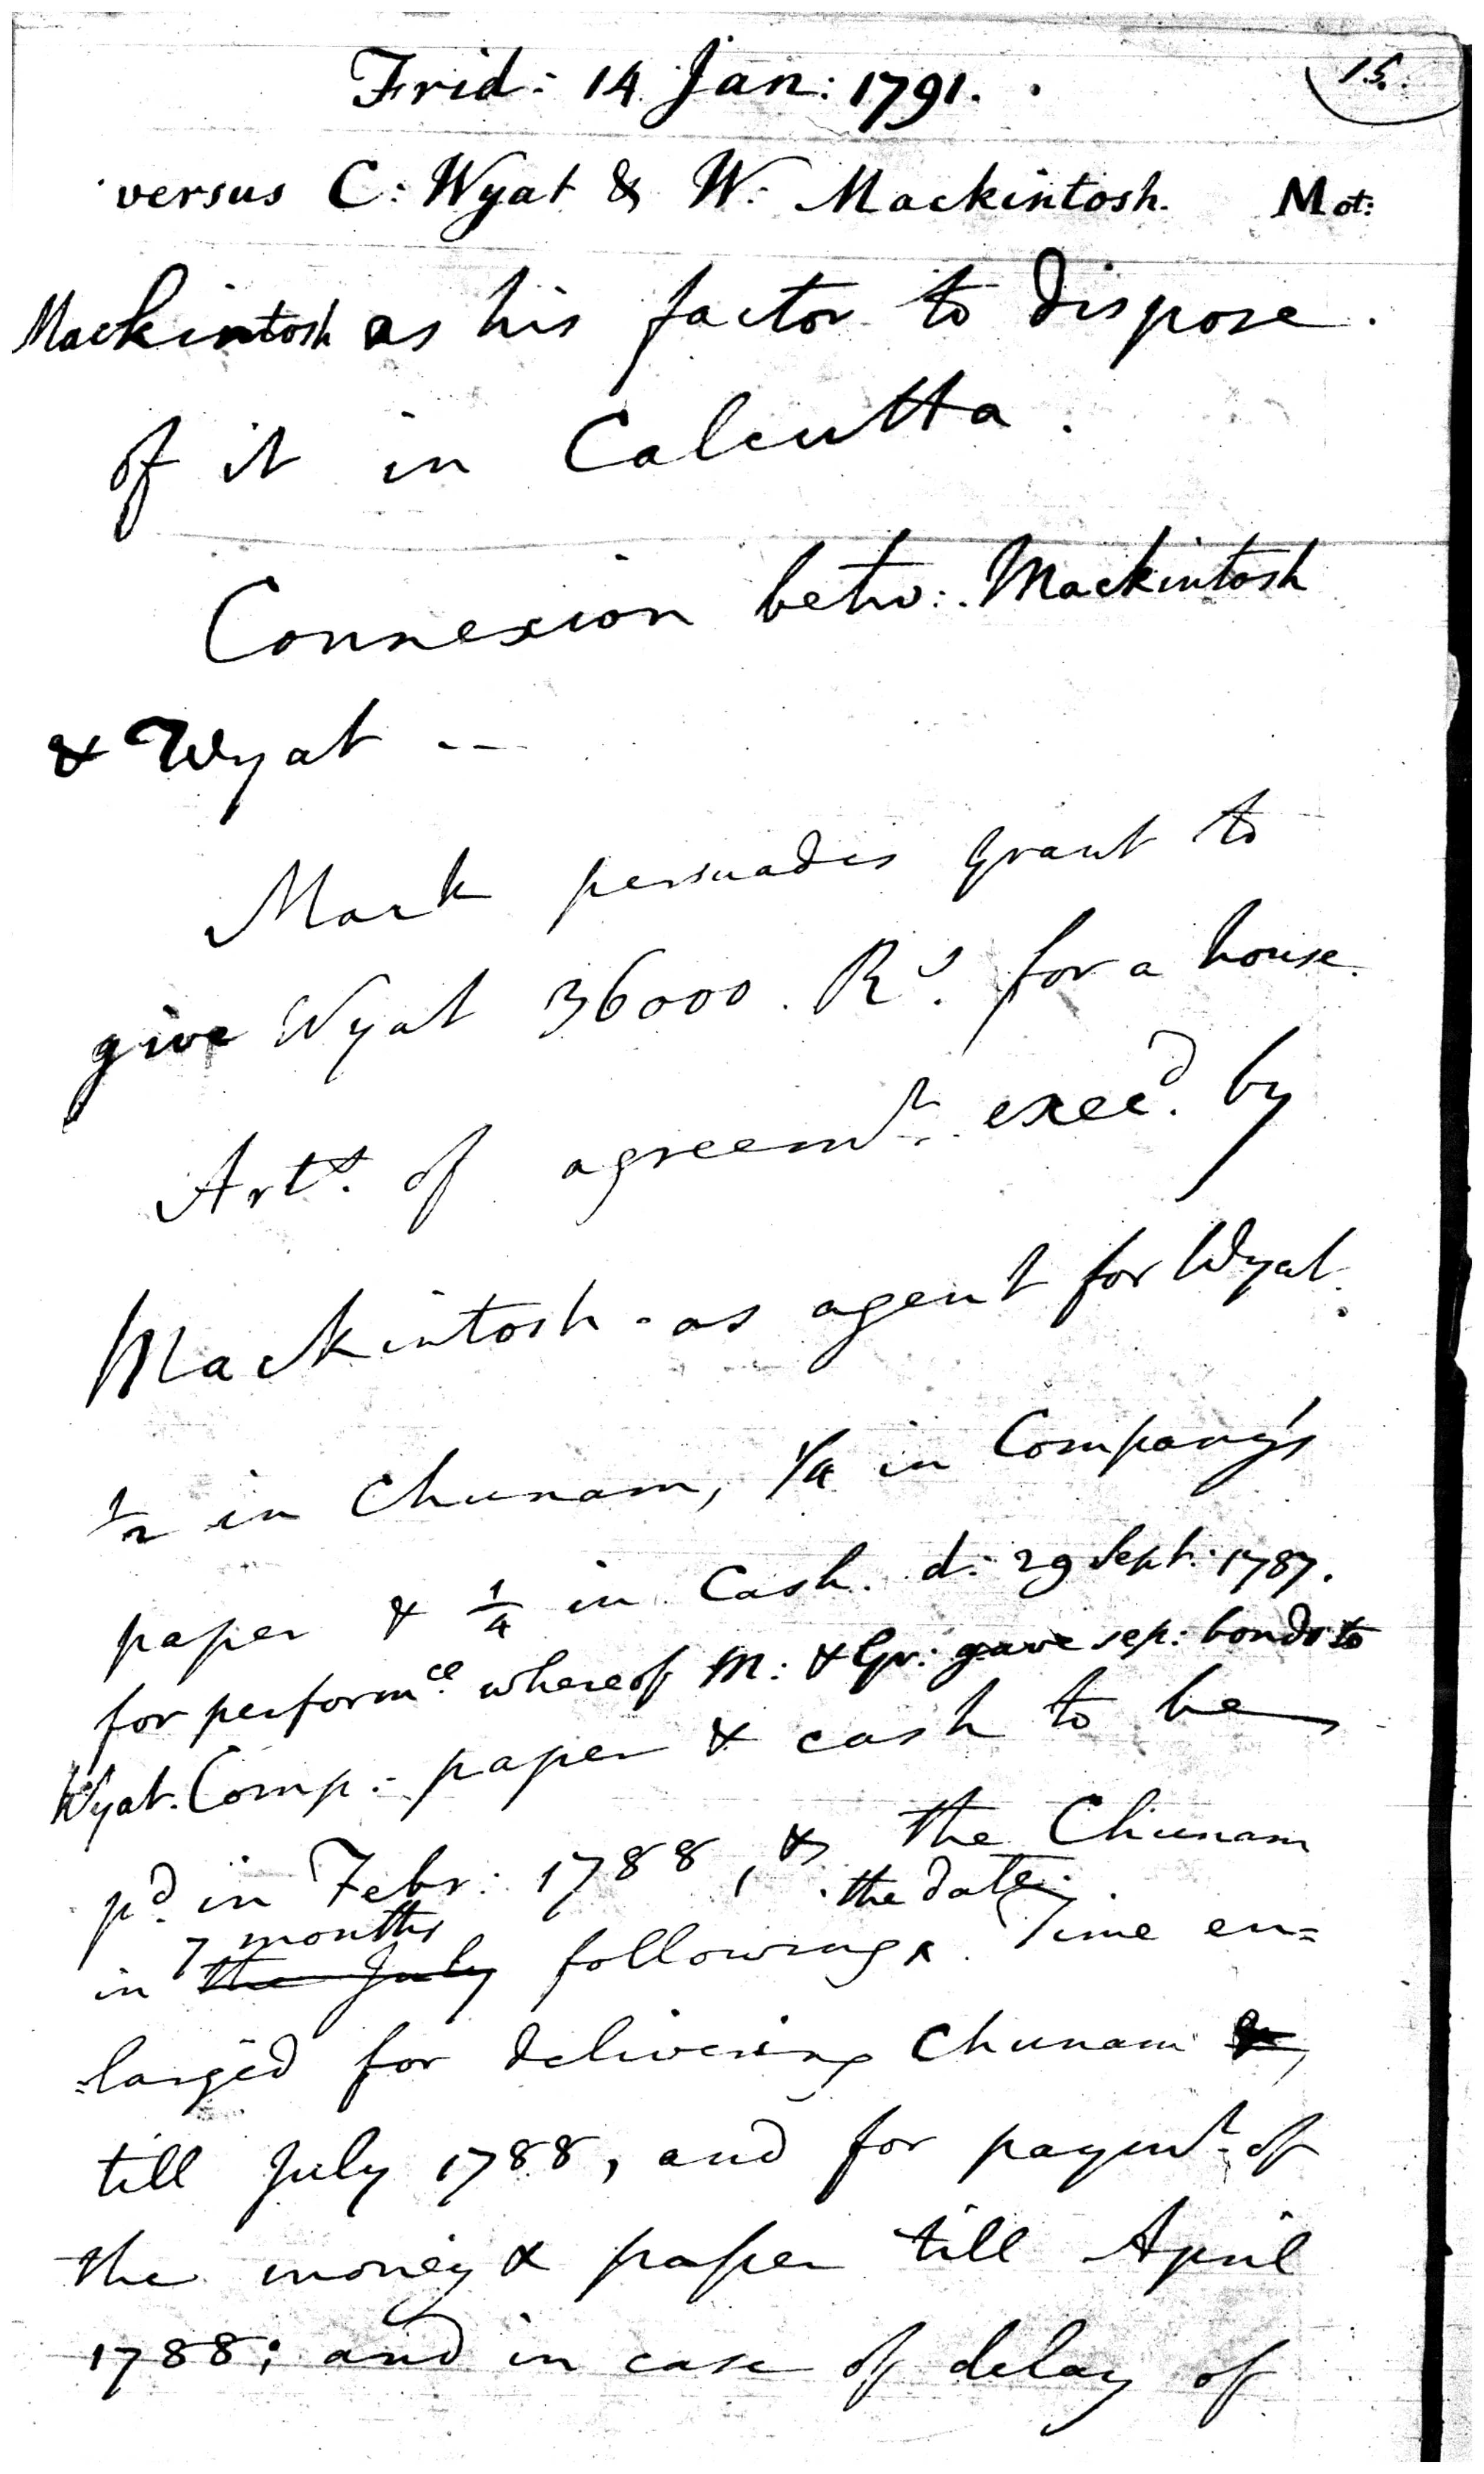 Frid: 14 Jan: 1791.
15.
versus C: Wyat & W: Mackintosh. Mot:
Mackintosh as his factor to dispose.
of it in Calcutta.
Connexion betw: Mackintosh
& Wyat ---
Mack persuades Grant to
give Wyat 36000. Rs. for a house.
Arts. of agreemt. execd. by
Mackintosh - as agent for Wyat.
1/2 in Chunam, 1/4 in Company's
paper & 1/4 in Cash. d: 29 Sept: 1787.
for performce. whereof M: & Gr: gave sep: bonds to
Wyat. Comp: paper & cash to be
pd. in Febr: 1788, & the Chunam
7 months the date.
in the July following^. Time en=
=larged for delivering Chunam &
till July 1788, and for paymt. of
the money & paper till April
1788; and in case of delay of